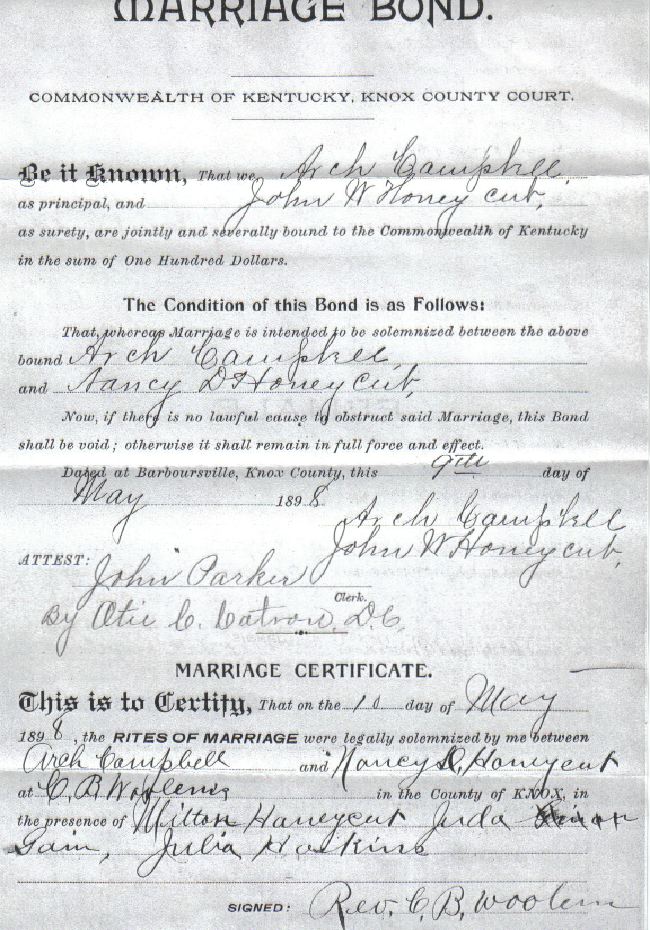 MARRIAGE BOND.
COMMONWEALTH OF KENTUCKY, KNOX COUNTY COURT.
Be it Known, That we, Arch Campbell
as principal, and John W Honeycut,
as surety, are jointly and severally bound to the Commonwealth of Kentucky
in the sum of One Hundred Dollars.
The Condition of this Bond is as Follows:
That, whereas Marriage is intended to be solemnized between the above
bound Arch Campbell
and Nancy D Honeycut,
Now, if there is no lawful cause to obstruct said Marriage, this Bond
shall be void; otherwise it shall remain in full force and effect.
Dated at Barboursville, Knox County, this 9th day of
May 1898
Arch Campbell
John W Honeycut,
ATTEST:
John Parker
Clerk.
By Otis C. Catron, D.C.
MARRIAGE CERTIFICATE.
This is to Certify, That on the 10 day of May
1898, the RITES OF MARRIAGE were legally solemnized by me between
Arch Campbell and Nancy D. Honeycut
at C. B. Woolems in the County of KNOX, in
the presence of Milton Honeycut Juda
Gain, Julia Hoskins
SIGNED: Rev. C. B. Woolem